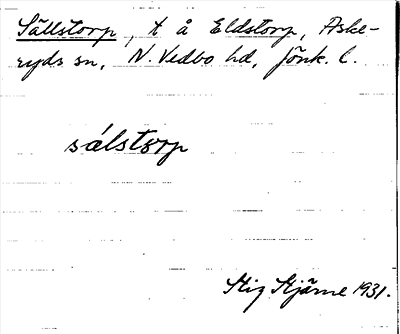 Sällstorp, t å Eldstorp, Aske-
ryds sn, N. Vedbo hd, Jönk. l.
sálstorp
Stig Stjärne 1931.